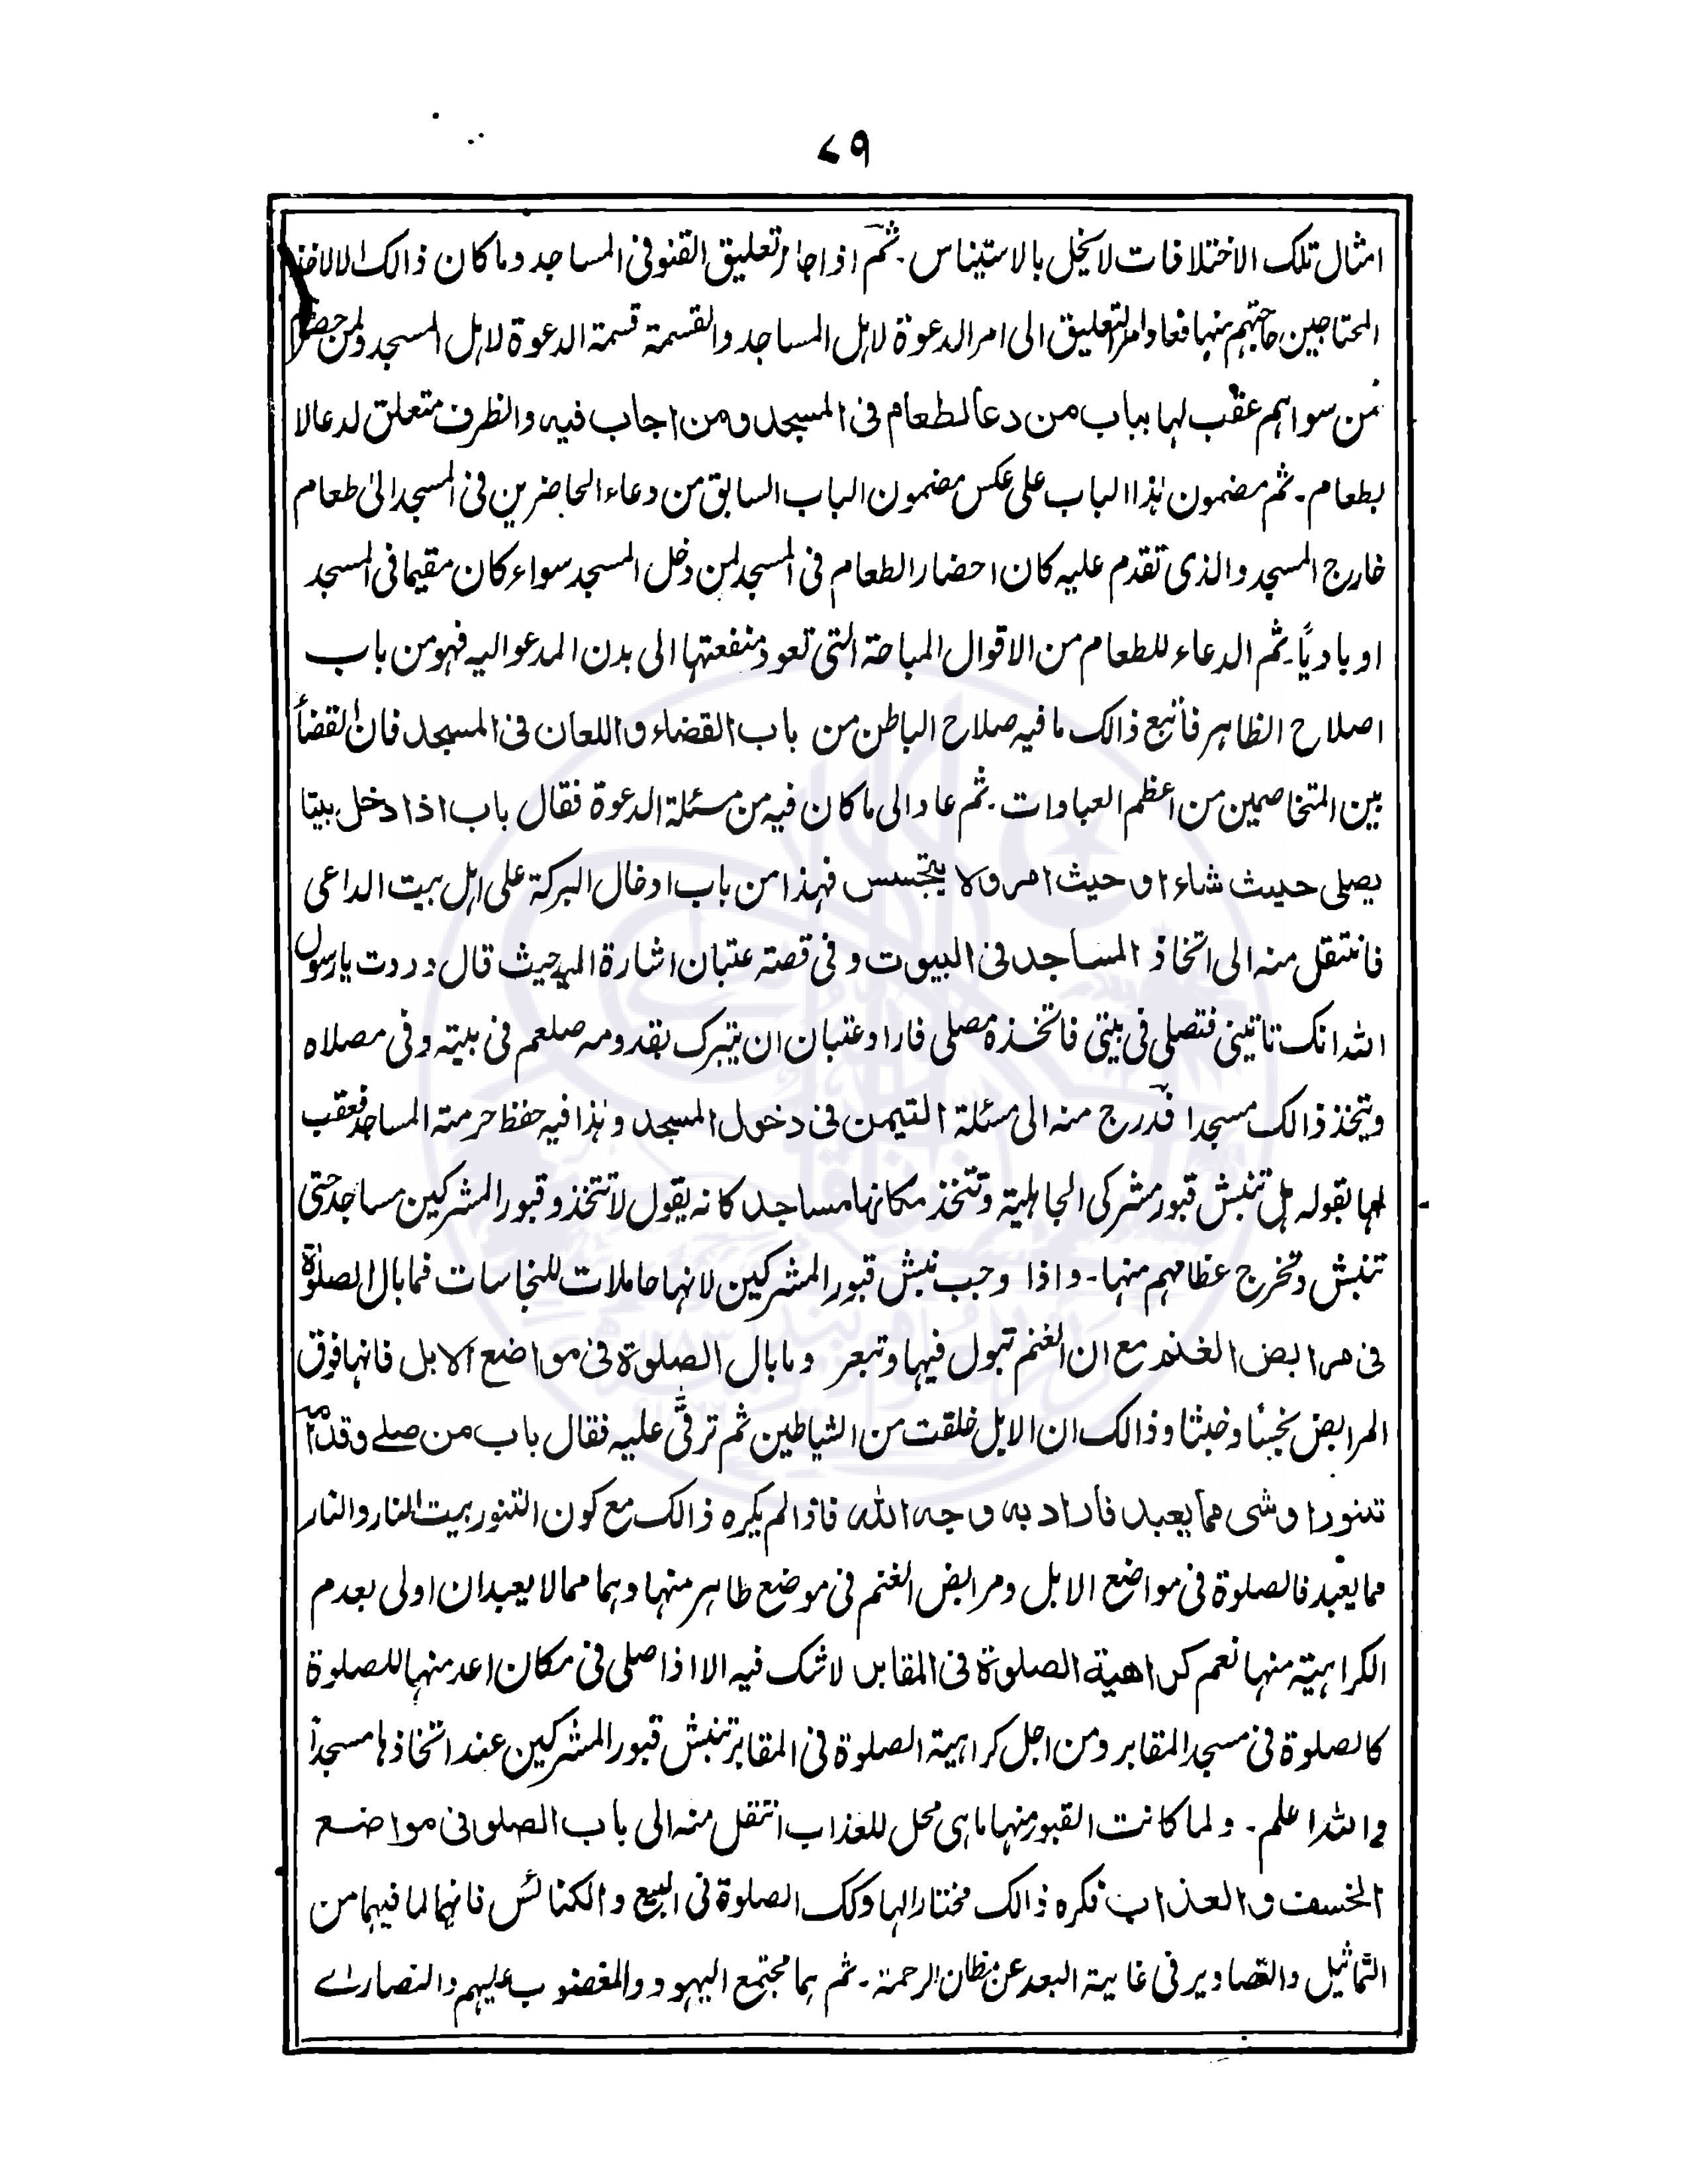 ۷۹
امثال تلك الاختلافات لا يخل بالاستيناس۔ ثم اذا جاز تعليق القنو فى المساجد وما كان ذالك الا لاخذ
المحتاجين حاجتهم منها فعاد امر التعليق الى امر الدعوة لاهل المساجد والقسمة قسمة الدعوة لاهل المسجد ولمن حضر
من سواهم عقب لها بباب من دعا لطعام فى المسجد ومن اجاب فيه والظرف متعلق لدعا لا
بطعام۔ ثم مضمون هذا الباب على عكس مضمون الباب السابق من دعاء الحاضرين فى المسجد الى طعام
خارج المسجد والذى تقدم عليه كان احضار الطعام فى المسجد لمن دخل المسجد سواء كان مقيما فى المسجد
او باديًا۔ ثم الدعاء للطعام من الاقوال المباحة التى تعود منفعتها الى بدن المدعو اليه فهو من باب
اصلاح الظاهر فأتبع ذالك ما فيه صلاح الباطن من باب القضاء واللعان فى المسجد فان القضأ
بين المتخاصمين من اعظم العبادات۔ ثم عاد الى ما كان فيه من مسئلة الدعوة فقال باب اذا دخل بيتا
يصلى حيث شاء او حيث امر ولا يتجسس فهذا من باب ادخال البركة على اهل بيت الداعى
فانتقل منه الى اتخاذ المساجد فى البيوت وفى قصة عتبان اشارة اليه حيث قال وددت يا رسول
الله انك تاتينى فتصلى فى بيتى فاتخذه مصلى فاراد عتبان ان يتبرك بقدومه صلعم فى بيته وفى مصلاه
ويتخذ ذالك مسجدا فدرج منه الى مسئلة التيمن فى دخول المسجد وهذا فيه حفظ حرمة المساجد فعقب
لها بقوله هل تنبش قبور مشركى الجاهلية وتتخذ مكانها مساجد كانه يقول لا تتخذو قبور المشركين مساجد حتى
تنبش وتخرج عظامهم منها۔ واذا وجب نبش قبور المشركين لانها حاملات للنجاسات فما بال الصلوٰة
فى مرابض الغنم مع ان الغنم تبول فيها وتبعر وما بال الصلوة فى مواضع الابل فانها فوق
المرابض نجسًا وخبثا وذالك ان الابل خلقت من الشياطين ثم ترقى عليه فقال باب من صلے وقدامه
تنورا وشى مما يعبد فاراد به وجه الله فاذا لم يكره ذالك مع كون التنور بيت النار والنار
مما يعبد فالصلوة فى مواضع الابل ومرابض الغنم فى موضع طاهر منها وهما مما لا يعبدان اولى بعدم
الكراهية منها نعم كراهية الصلوة فى المقابر لا شك فيه الا اذا صلى فى مكان اعد منها للصلوة
كالصلوة فى مسجد المقابر ومن اجل كراهية الصلوة فى المقابر تنبش قبور المشركين عند اتخاذها مسجدًا
والله اعلم۔ ولما كانت القبور منها ما هى محل للعذاب انتقل منه الى باب الصلو فى مواضع
الخسف والعذاب فكره ذالك مختارا لها وكك الصلوة فى البيع والكنائس فانهما لما فيهما من
التماثيل والتصاوير فى غاية البعد عن مظان الرحمة۔ ثم هما مجتمع اليهود والمغضوب عليهم والنصارے